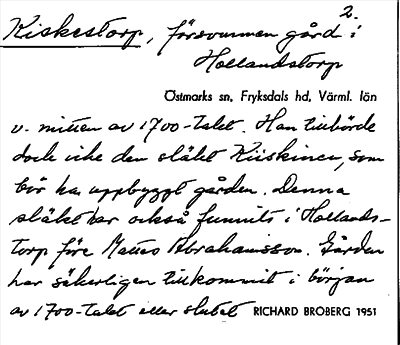 2.
Kiskestorp, försvunnen gård i
Hollandstorp
Östmarks sn, Fryksdals hd, Värml. län
v. mitten av 1700-talet. Han tillhörde
dock icke den släkt Kiiskinen, som
bör ha uppbyggt gården. Denna
släkt har också funnits i Hollands-
torp före Mattes Abrahamsson. Gården
har säkerligen tillkommit i början
av 1700-talet eller slutet RICHARD BROBERG 1951